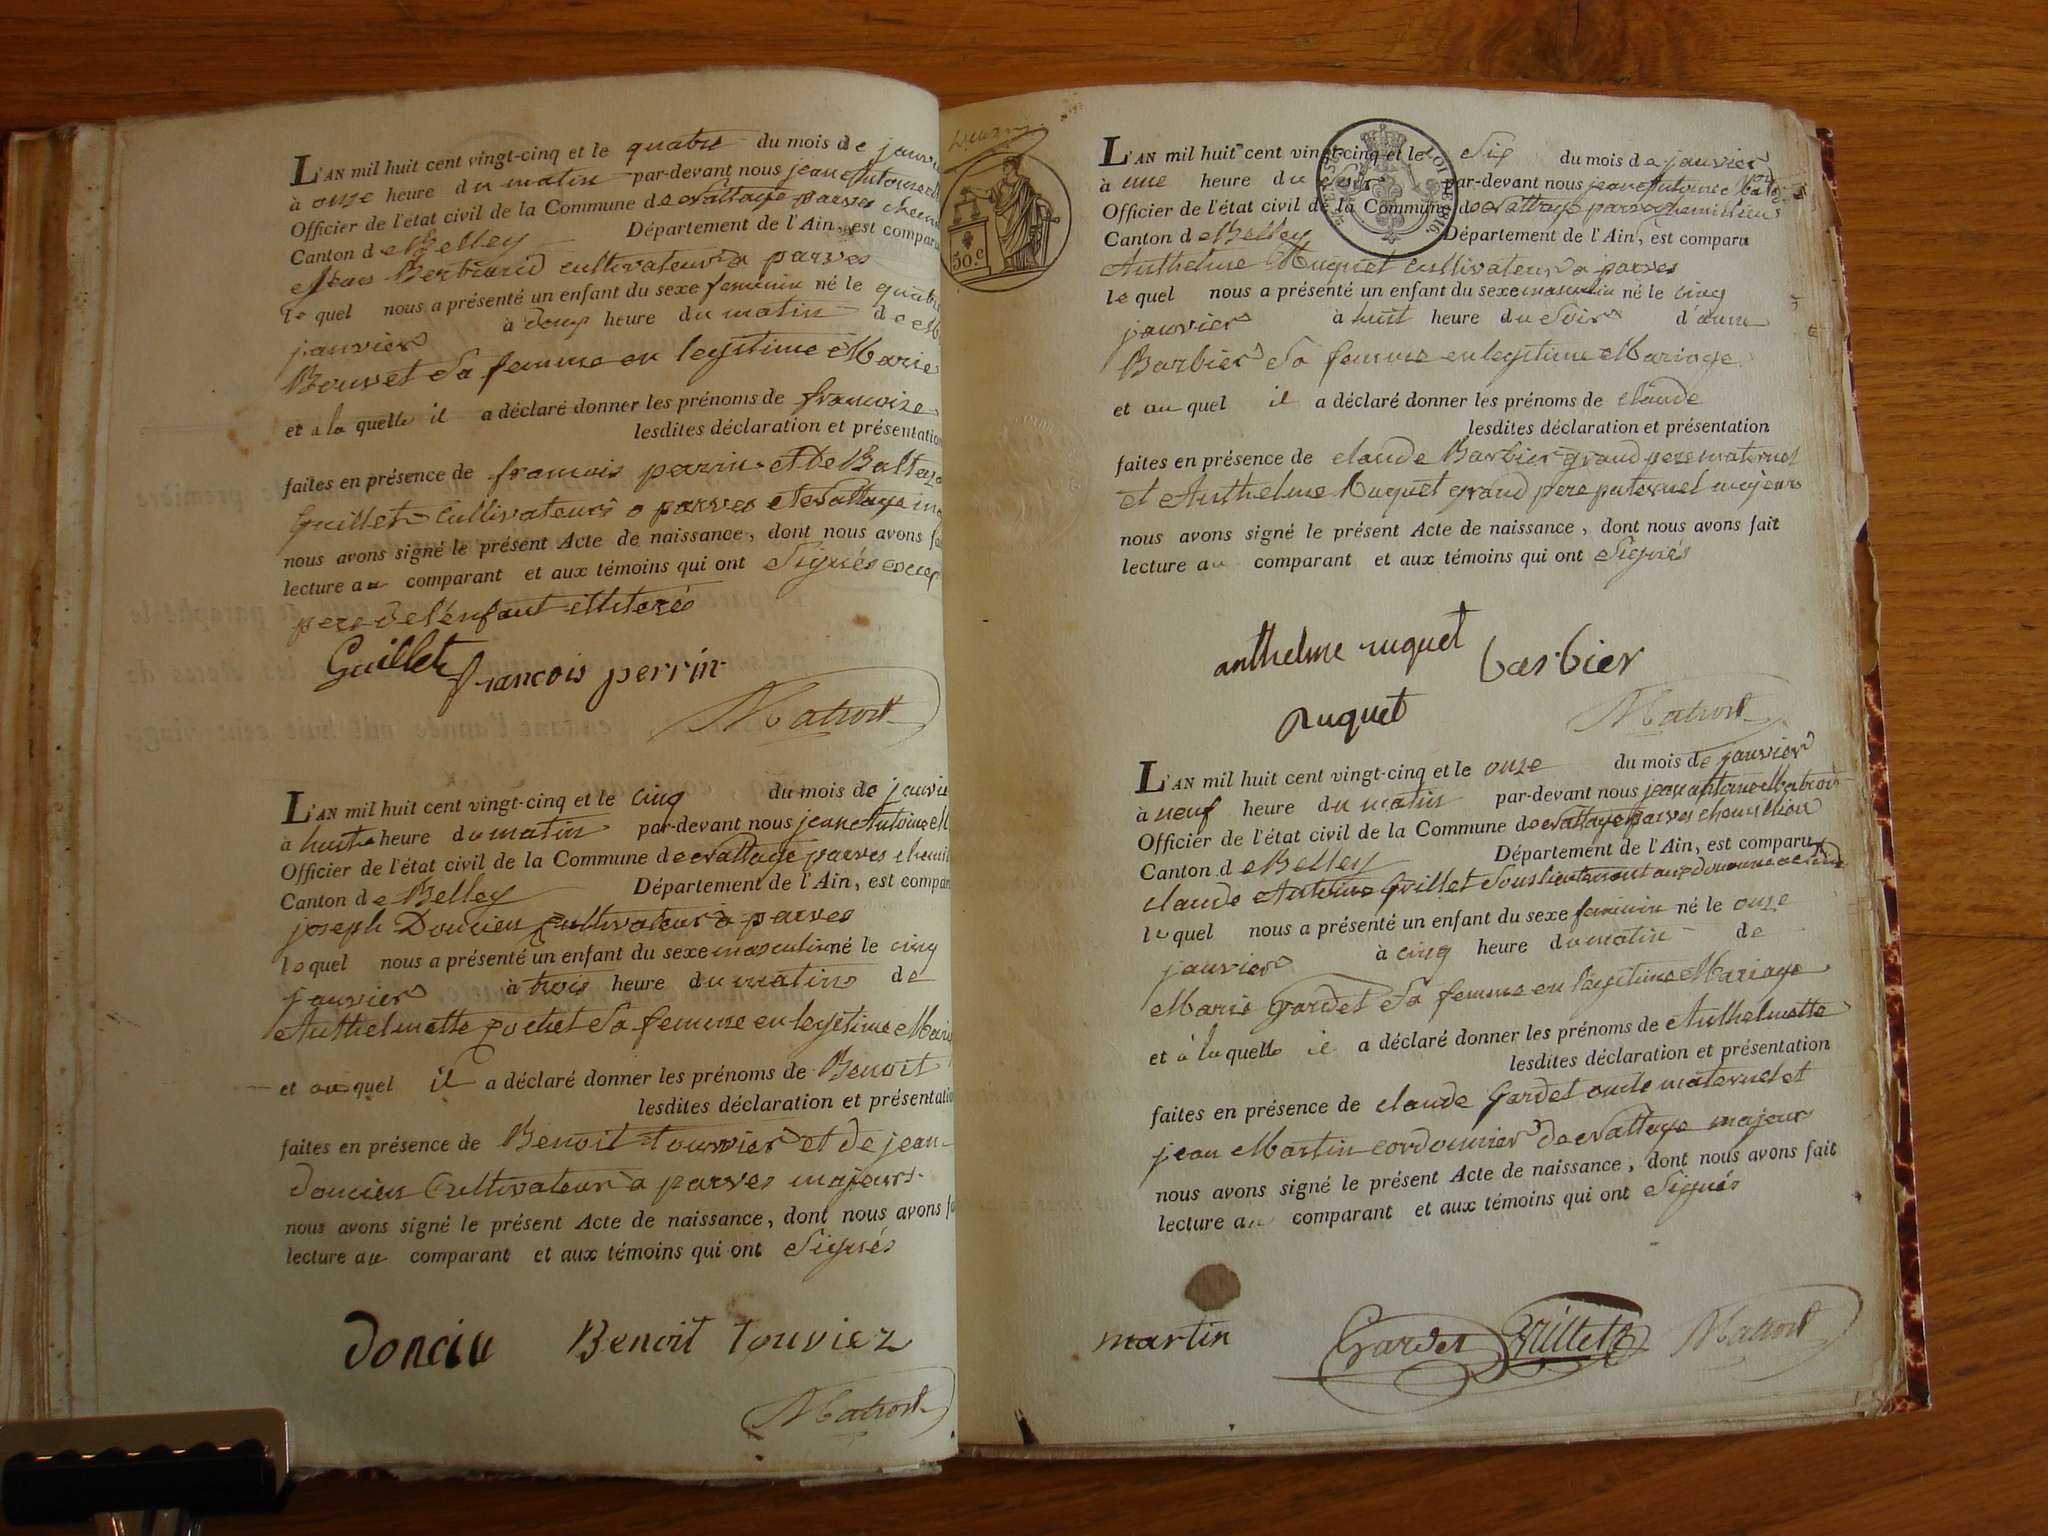 L'AN mil huit cent vingt-cinq et le quatre du mois de janvi
à onze heure du matin par-devant nous jean Antoine
Officier de l'état civil de la Commune de Nattage parves chemi
Canton de Belley Département de l'Ain, est comparu
Jean Bertrand cultivateur à parves
lequel nous a présenté un enfant du sexe feminin né le quatre
janvier à deux heure du matin de M
Bouvet Sa femme en legitime Marie
et a la quelle il a déclaré donner les prénoms de francoise
lesdites déclaration et présentation
faites en présence de francois perrin et De Baltaza
Guillet Cultivateurs a parves et Nattage
nous avons signé le présent Acte de naissance, dont nous avons fa
lecture au comparant et aux témoins qui ont Signés excep
pere de l'enfant illiterés
Guillet francois perrin
Matrod
L'AN mil huit cent vingt-cinq et le cinq du mois de janvie
à huit heure du matin par-devant nous jean Antoine M
Officier de l'état civil de la Commune de Nattage parves chemil
Canton de Belley Département de l'Ain, est compar
joseph Doncieu cultivateur à parves
lequel nous a présenté un enfant du sexe masculin né le cinq
janvier à trois heure du matin de
Anthelmette pochet Sa femme en legitime Mari
et au quel il a déclaré donner les prénoms de Benoit
lesdites déclaration et présentatio
faites en présence de Benoit touvier et de jean
doncieu Cultivateur à parves majeurs
nous avons signé le présent Acte de naissance, dont nous avons fa
lecture au comparant et aux témoins qui ont Signés
donciu Benoit touviez
Matrod
50.c
LOI DE 1816
L'AN mil huit cent vingt-cinq et le Six du mois de janvier
à une heure du Soir par-devant nous jean Antoine Matrod
Officier de l'état civil de la Commune de Nattage parves chemillieu
Canton de Belley Département de l'Ain, est comparu
Anthelme Ruquet cultivateur a parves
lequel nous a présenté un enfant du sexe masculin né le cinq
janvier à huit heure du Soir d'anne
Barbier Sa femme en legitime Mariage
et au quel il a déclaré donner les prénoms de claude
lesdites déclaration et présentation
faites en présence de claude Barbier grand pere maternel
et Anthelme Ruquet grand pere paternel majeurs
nous avons signé le présent Acte de naissance, dont nous avons fait
lecture au comparant et aux témoins qui ont Signés
anthelme ruquet barbier
ruquet Matrod
L'AN mil huit cent vingt-cinq et le onze du mois de janvier
à neuf heure du matin par-devant nous jean antoine Matrod
Officier de l'état civil de la Commune de Nattage parves chemillieu
Canton de Belley Département de l'Ain, est comparu
claude Antoine Grillet Souslieutenant aux douanne
lequel nous a présenté un enfant du sexe feminin né le onze
janvier à cinq heure du matin de
Marie Gardet Sa femme en legitime Mariage
et à la quelle il a déclaré donner les prénoms de Anthelmette
lesdites déclaration et présentation
faites en présence de claude Gardet oncle maternel et
jean Martin cordonnier de Nattage majeurs
nous avons signé le présent Acte de naissance, dont nous avons fait
lecture au comparant et aux témoins qui ont Signés
martin Gardet Grillet Matrod